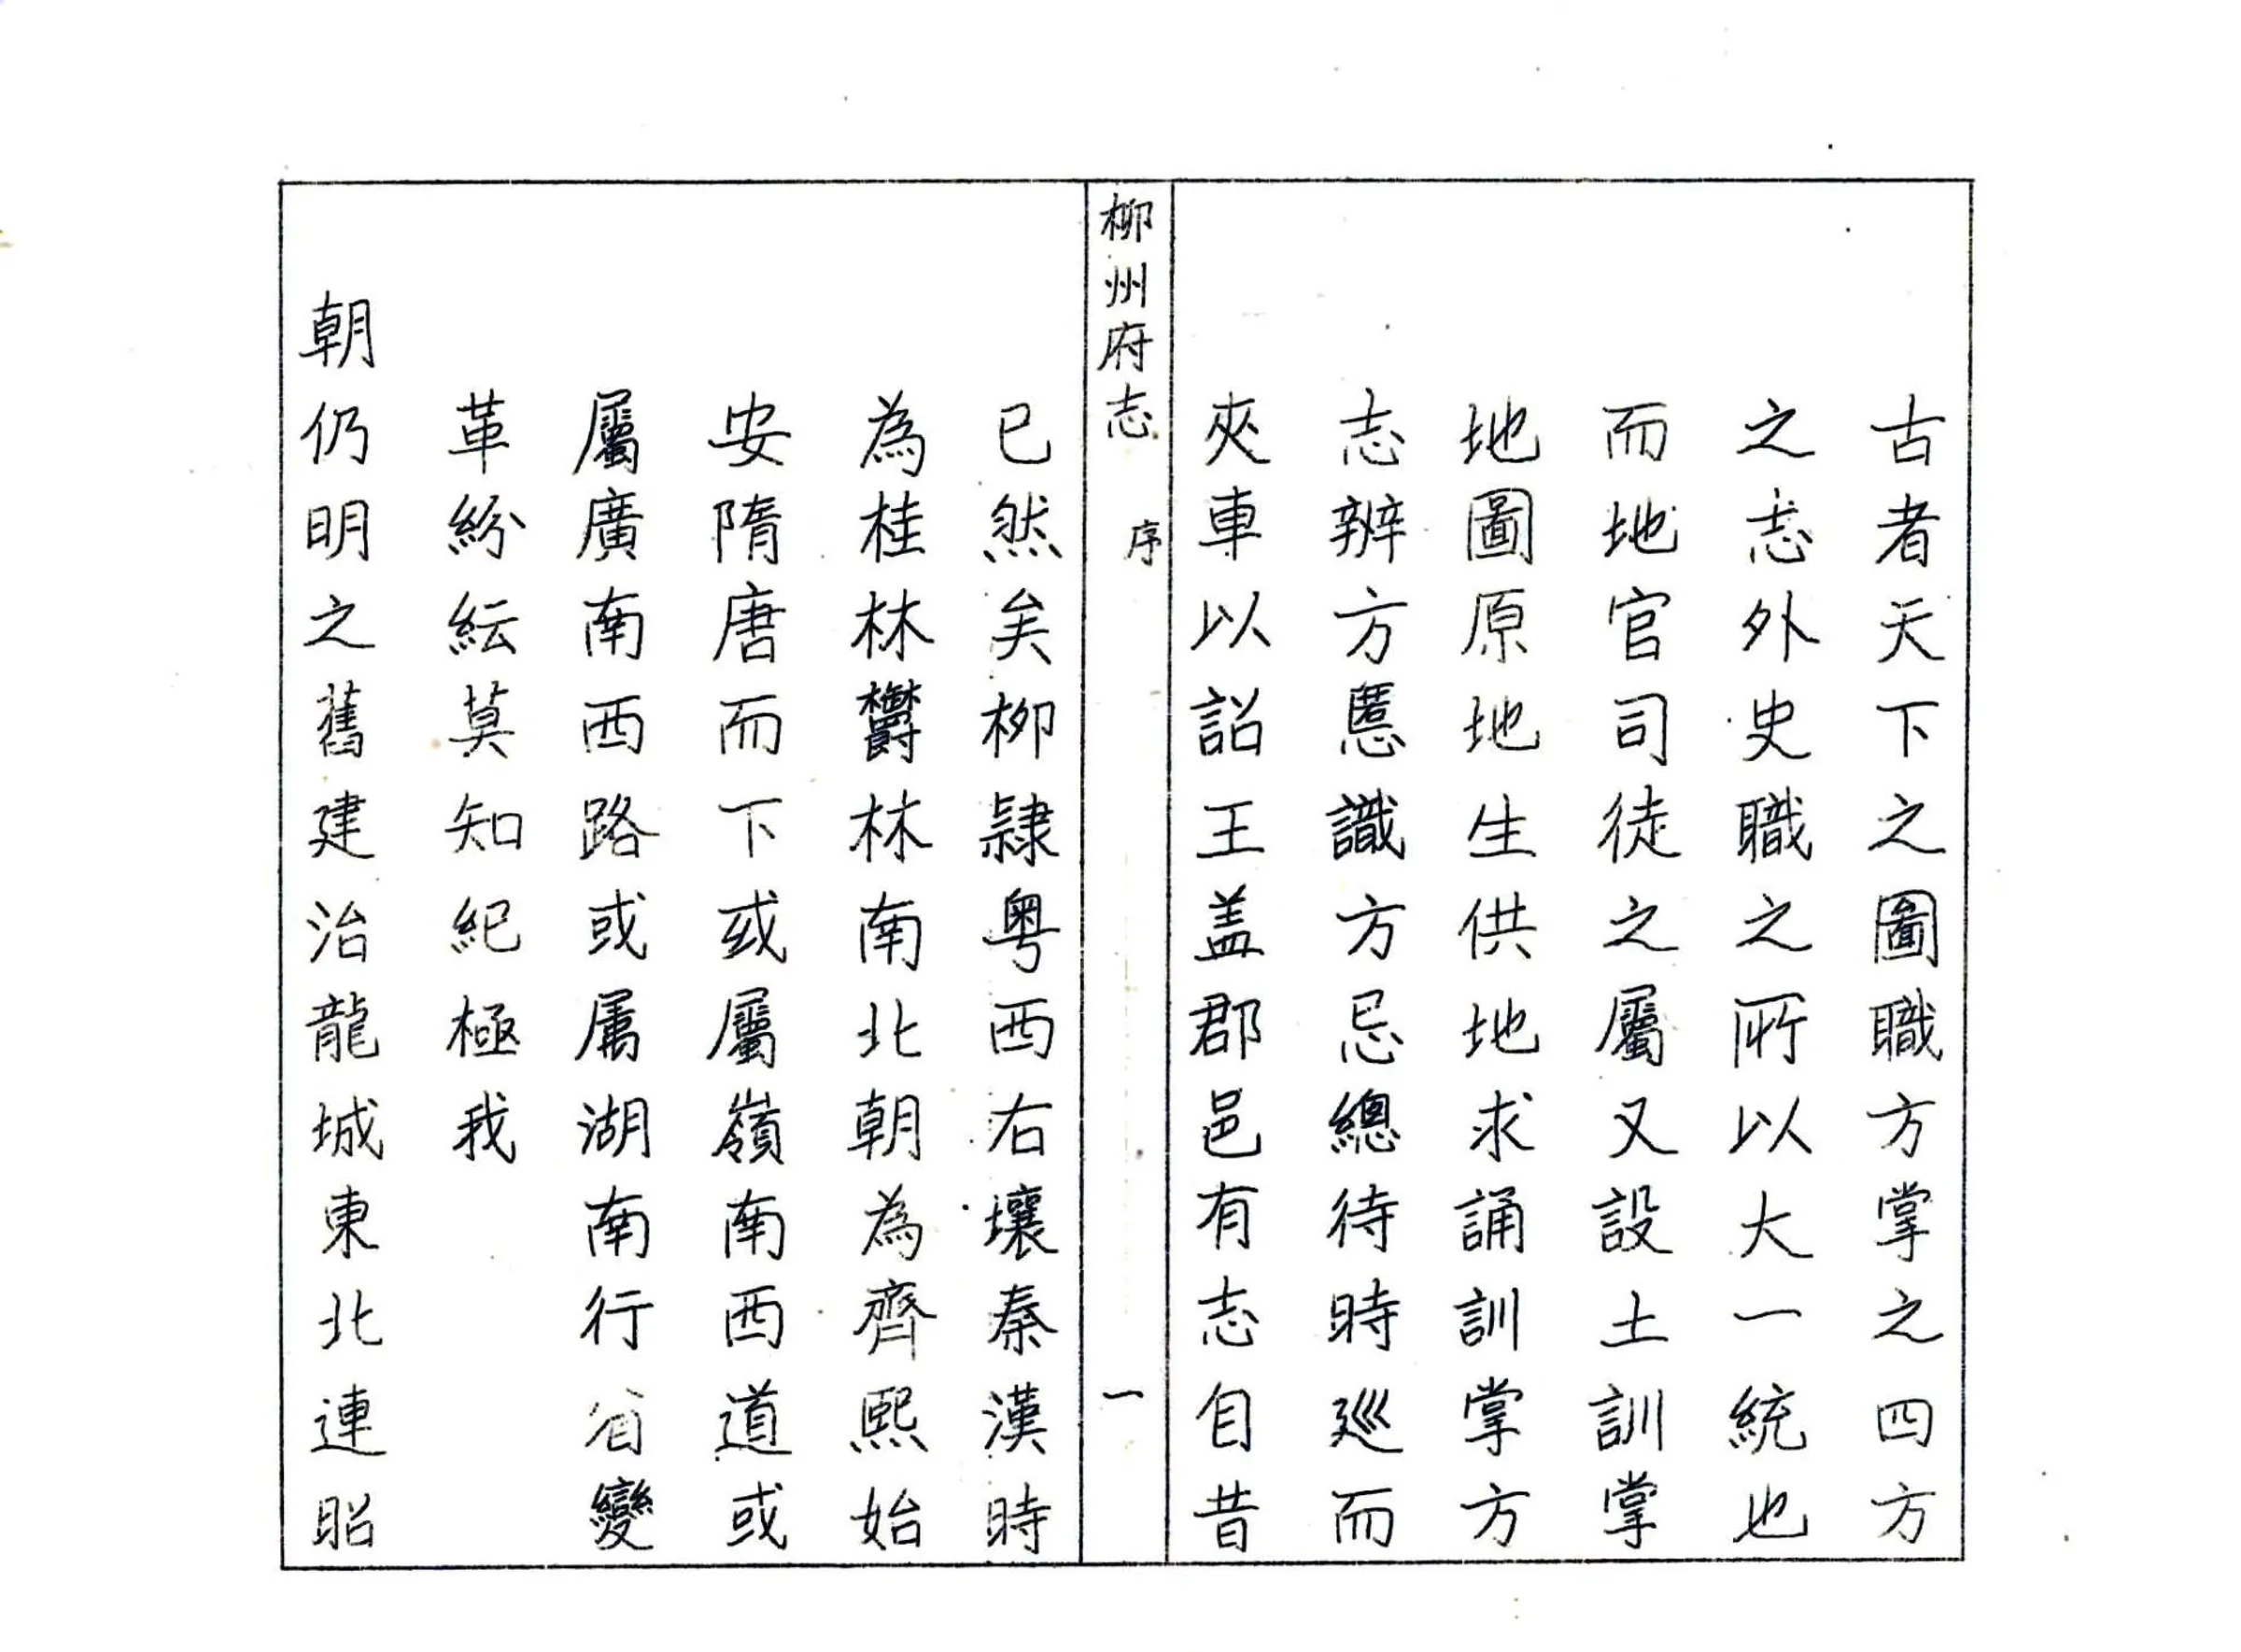 古者天下之圖職方掌之四方
之志外史職之所以大一統也
而地官司徒之屬又設土訓掌
地圖原地生供地求誦訓掌方
志辨方慝識方忌總待時廵而
夾車以詔王盖郡邑有志自昔
柳州府志 序 一
已然矣柳隸粤西右壤秦漢時
為桂林欝林南北朝為齊熙始
安隋唐而下或屬嶺南西道或
屬廣南西路或属湖南行省變
革紛紜莫知紀極我
朝仍明之舊建治龍城東北連昭